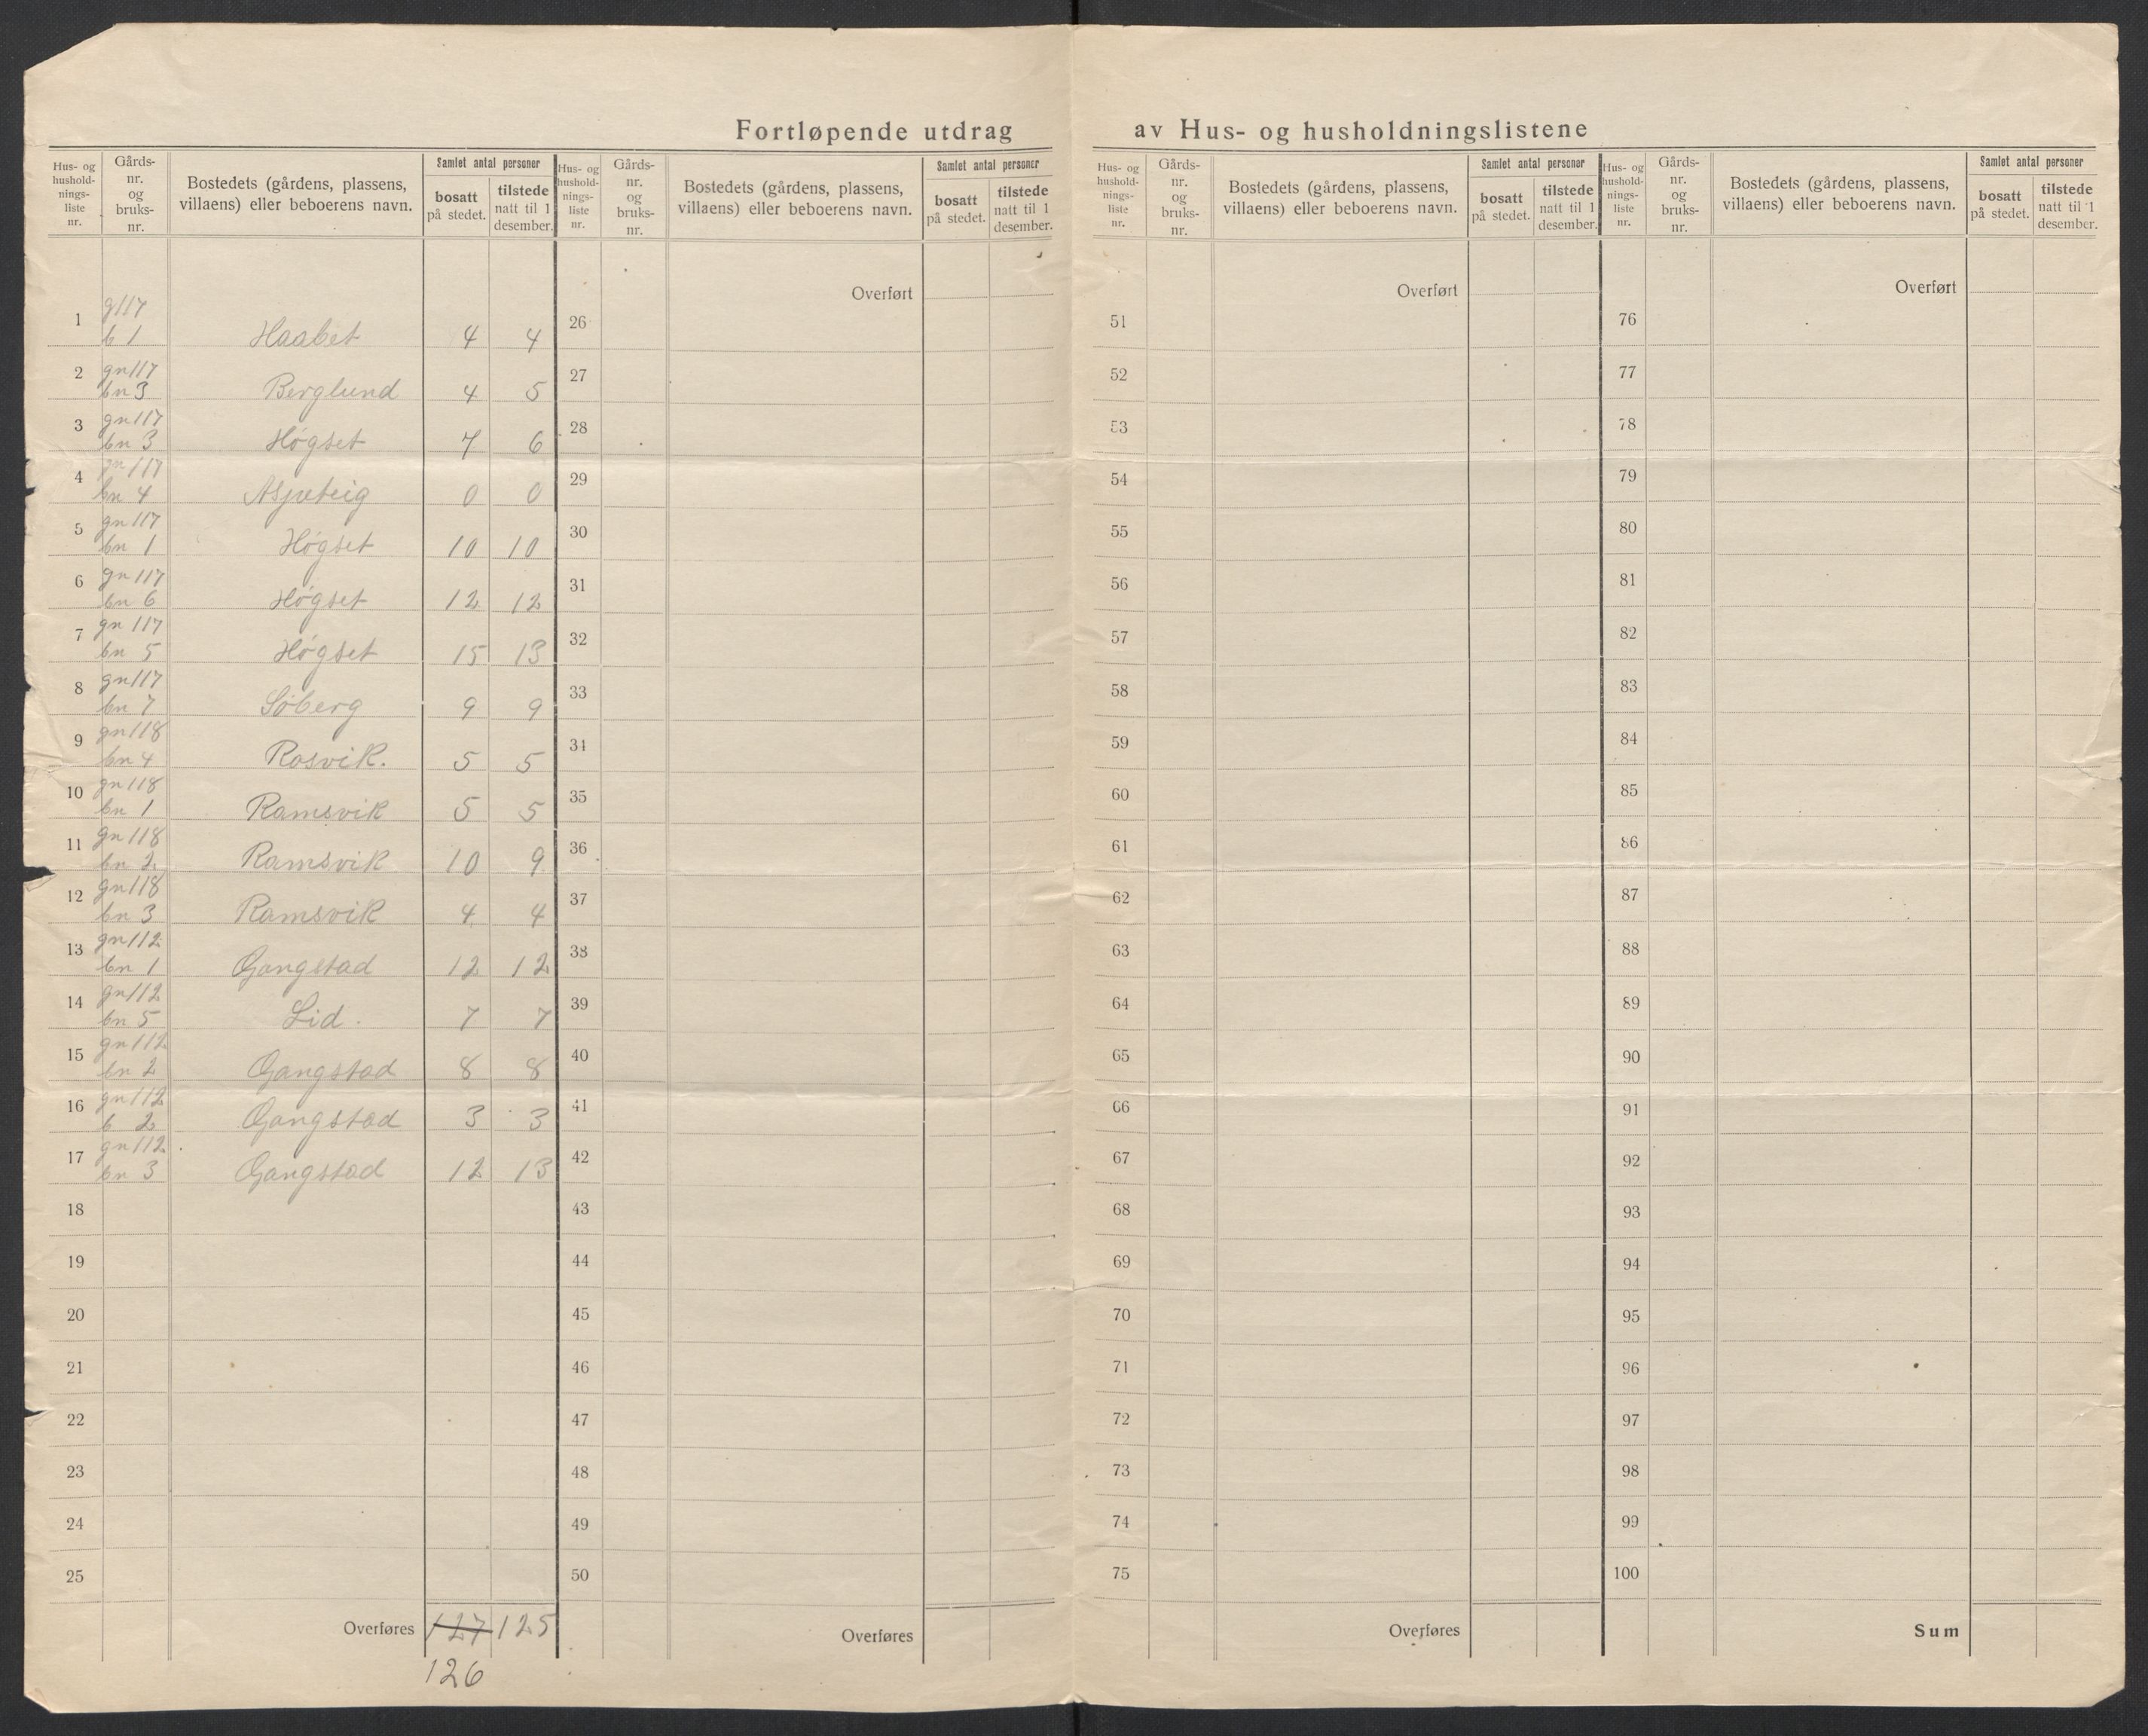 Fortløpende utdrag av Hus- og husholdningslistene
Hus- og hushold-nings-liste nr. Gårds-nr. og bruks-nr. Bostedets (gårdens, plassens, villaens) eller beboerens navn. Samlet antal personer bosatt på stedet. tilstede natt til 1 desember.
Hus- og hushold-nings-liste nr. Gårds-nr. og bruks-nr. Bostedets (gårdens, plassens, villaens) eller beboerens navn. Samlet antal personer bosatt på stedet. tilstede natt til 1 desember.
Hus- og hushold-nings-liste nr. Gårds-nr. og bruks-nr. Bostedets (gårdens, plassens, villaens) eller beboerens navn. Samlet antal personer bosatt på stedet. tilstede natt til 1 desember.
Hus- og hushold-nings-liste nr. Gårds-nr. og bruks-nr. Bostedets (gårdens, plassens, villaens) eller beboerens navn. Samlet antal personer bosatt på stedet. tilstede natt til 1 desember.
Overført Overført Overført
1 g117 b 1 Haabet 4 4 26 51 76
2 gn117 bn 3 Berglund 4 5 27 52 77
3 gn117 bn 3 Høgset 7 6 28 53 78
4 gn117 bn 4 0 0 29 54 79
5 gn117 bn 1 Høgset 10 10 30 55 80
6 gn117 bn 6 Høgset 12 12 31 56 81
7 gn117 bn 5 Høgset 15 13 32 57 82
8 gn117 bn 7 Søberg 9 9 33 58 83
9 gn118 bn 4 Rosvik. 5 5 34 59 84
10 gn118 bn 1 Ramsvik 5 5 35 60 85
11 gn118 bn 2 Ramsvik 10 9 36 61 86
12 gn118 bn 3 Ramsvik 4 4 37 62 87
13 gn112 bn 1 Gangstad 12 12 38 63 88
14 gn112 bn 5 Lid. 7 7 39 64 89
15 gn112 bn 2 Gangstad 8 8 40 65 90
16 gn112 b 2 Gangstad 3 3 41 66 91
17 gn112 bn 3 Gangstad 12 13 42 67 92
18 43 68 93
19 44 69 94
20 45 70 95
21 46 71 96
22 47 72 97
23 48 73 98
24 49 74 99
25 50 75 100
Overføres 127 125 Overføres Overføres Sum
126